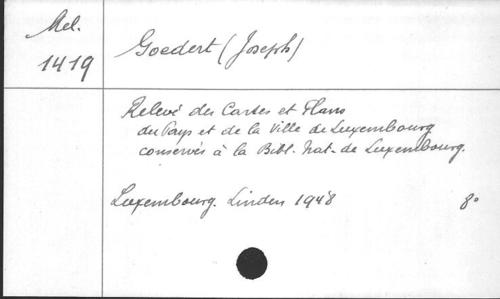 Mel.
1419
Goedert (Joseph)
Relevé des Cartes et Plans
du Pays et de la Ville de Luxembourg
conservés à la Bibl. Nat. de Luxembourg.
Luxembourg. Linden 1948 8°